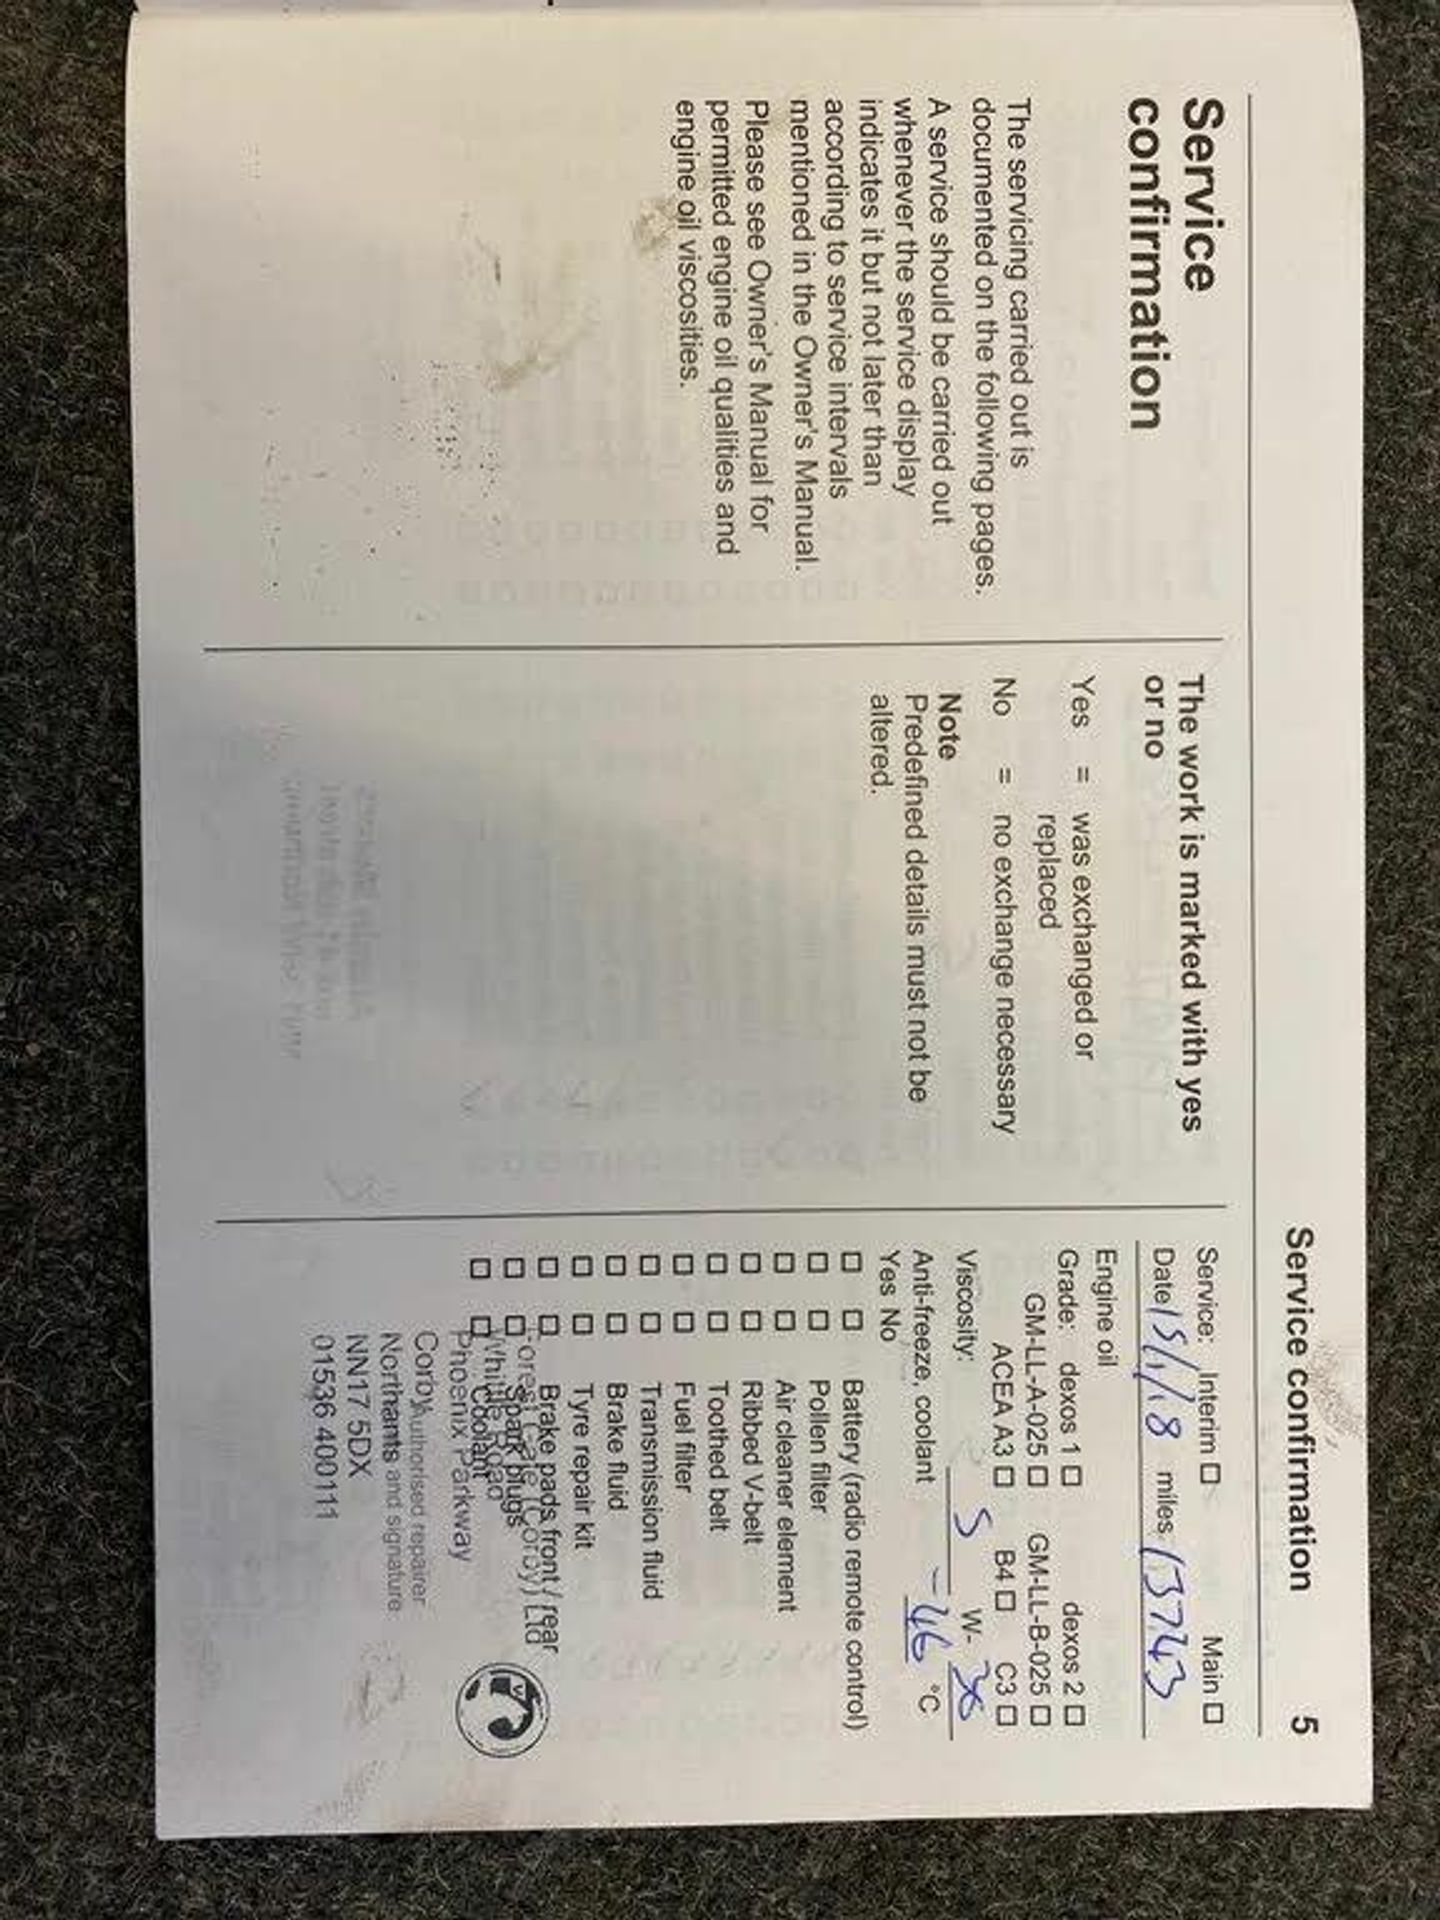 Service confirmation 5
Service
confirmation
The servicing carried out is
documented on the following pages.
A service should be carried out
whenever the service display
indicates it but not later than
according to service intervals
mentioned in the Owner's Manual.
Please see Owner's Manual for
permitted engine oil qualities and
engine oil viscosities.
The work is marked with yes
or no
Yes = was exchanged or
replaced
No = no exchange necessary
Note
Predefined details must not be
altered.
Service: Interim ☐ Main ☐
Date 15/1/18 miles 13743
Engine oil
Grade: dexos 1 ☐ dexos 2 ☐
GM-LL-A-025 ☐ GM-LL-B-025 ☐
ACEA A3 ☐ B4 ☐ C3 ☐
Viscosity: 5 W- 30
Anti-freeze, coolant -46 °C
Yes No
☐ ☐ Battery (radio remote control)
☐ ☐ Pollen filter
☐ ☐ Air cleaner element
☐ ☐ Ribbed V-belt
☐ ☐ Toothed belt
☐ ☐ Fuel filter
☐ ☐ Transmission fluid
☐ ☐ Brake fluid
☐ ☐ Tyre repair kit
☐ ☐ Brake pads front / rear
☐ ☐ Spark plugs
☐ ☐ Coolant
Authorised repairer
and signature
Forest Gate (Corby) Ltd
Road
Phoenix Parkway
Corby
Northants
NN17 5DX
01536 400111